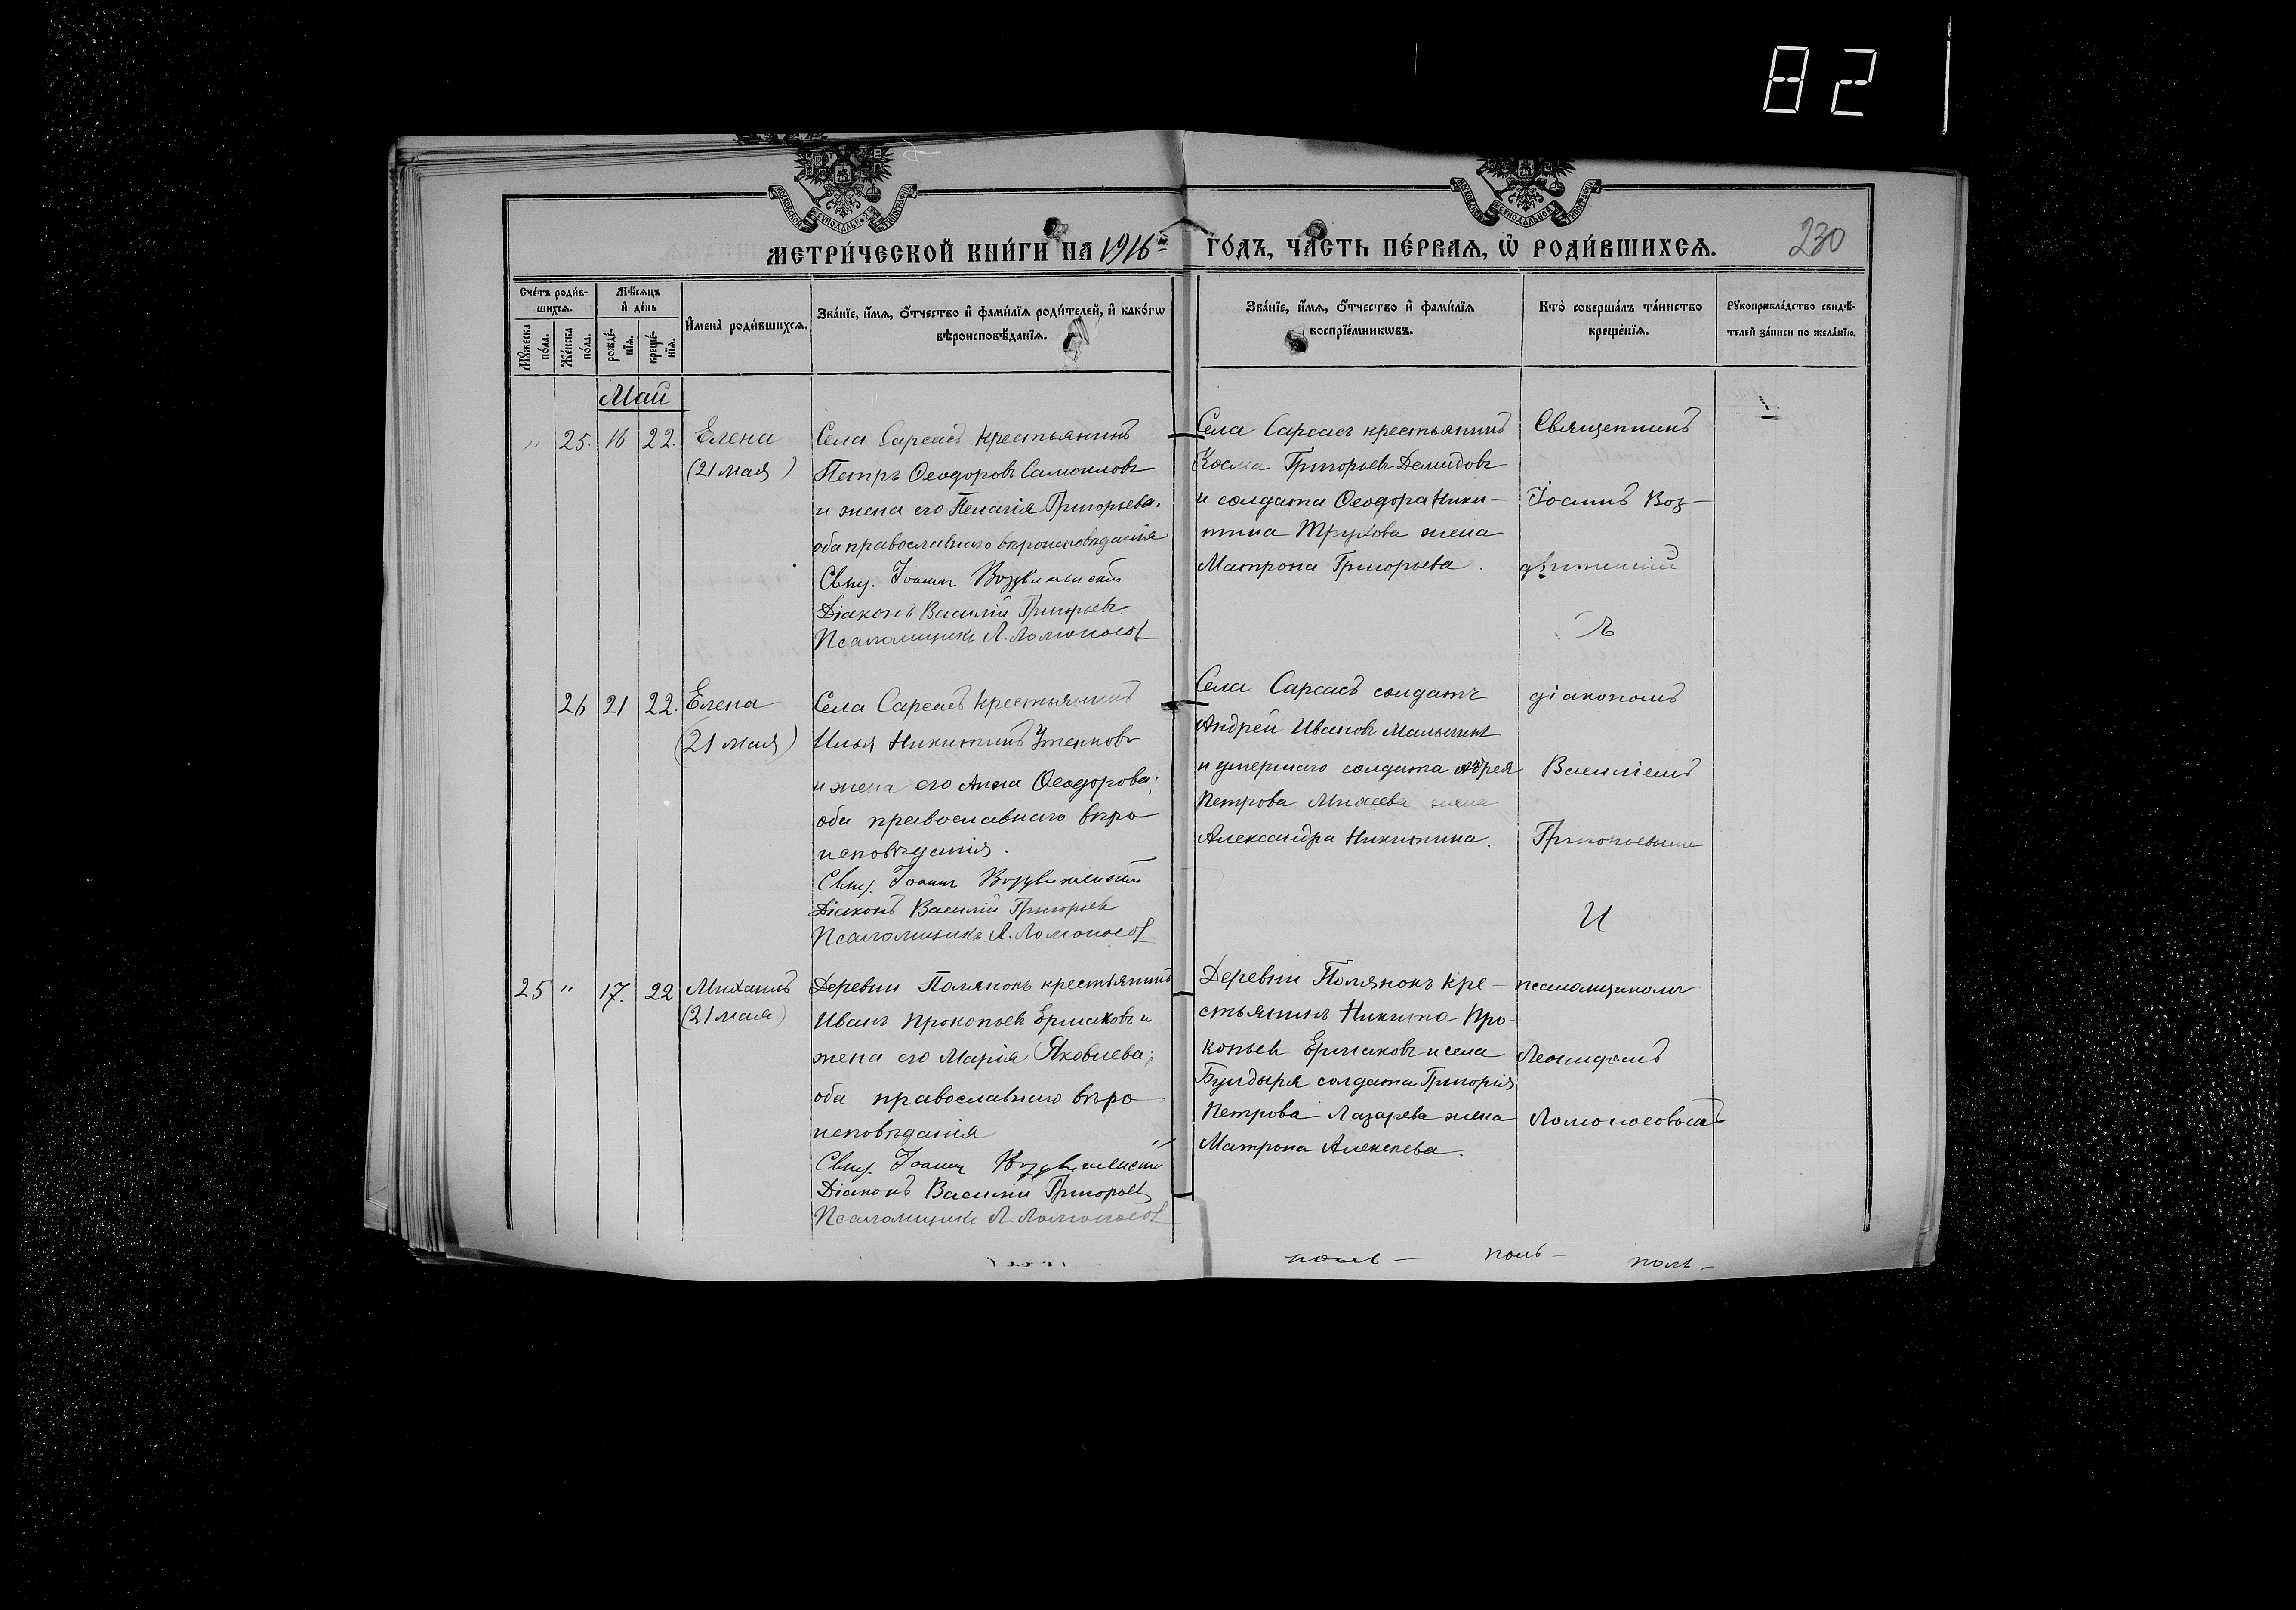 82
230
МЕТРИ́ЧЕСКОЙ КНИ́ГИ НА 1916й ГО́ДЪ, ЧА́СТЬ ПЕ́РВАЯ, Ѡ҆ РОДИ́ВШИХСЯ.
Сче́тъ роди́в-
шихся.
Мѣ́сяцъ
и҆ де́нь
Мꙋ́жеска
по́ла.
Же́нска
по́ла.
рожде́-
нїя.
креще́-
нїя.
И҆мена̀ роди́вшихся.
Зва́нїе, и҆́мя, ѻ҆́тчество и҆ фами́лїя роди́телей, и҆ како́гѡ
вѣроисповѣ́данїя.
Зва́нїе, и҆́мя, ѻ҆́тчество и҆ фами́лїя
воспрїе́мникѡвъ.
Кто̀ соверша́лъ та́инство
креще́нїя.
Рꙋкоприкла́дство свидѣ́-
телей за́писи по жела́нїю.
Май
" 25. 16 22. Елена
(21 мая)
Села Сарсасъ крестьянинъ
Петръ Ѳеодоровъ Самойловъ
и жена его Пелагія Григорьева.
оба православнаго вѣроисповѣданія
Свщ. Іоаннъ Воздвиженскій
Діаконъ Василій Григорьевъ
Псаломщикъ Л. Ломоносов
Села Сарсасъ крестьянинъ
Косма Григорьевъ Демидовъ
и солдата Ѳеодора Ники-
тина Трухова жена
Матрона Григорьева.
Священникъ
Іоаннъ Воз-
движенскій
26 21 22. Елена
(21 мая)
Села Сарсасъ крестьянинъ
Илья Никитинъ
и жена его Анна Ѳеодорова;
оба православнаго вѣро
исповѣданія.
Свщ. Іоаннъ Воздвиженскій
Діаконъ Василій Григорьев
Псаломщикъ Л. Ломоносов
Села Сарсасъ солдатъ
Андрей Ивановъ
и умершаго солдата
Петрова жена
Александра Никитина.
діакономъ
Василіемъ
Григорьевымъ
И
25 " 17. 22 Михаилъ
(21 мая)
Деревни Полянокъ крестьянинъ
Иванъ Прокопьевъ Ермаковъ и
жена его Марія Яковлева;
оба православнаго вѣро
исповѣданія
Свщ. Іоаннъ Воздвиженскій
Діаконъ Василій Григорьев
Псаломщикъ Л. Ломоносов
Деревни Полянокъ кре-
стьянинъ Никита Про-
копьев Ермаковъ и села
Булдыря солдата Григорія
Петрова Лазарева жена
Матрона Алексѣева.
псаломщикомъ
Леонидомъ
Ломоносовымъ